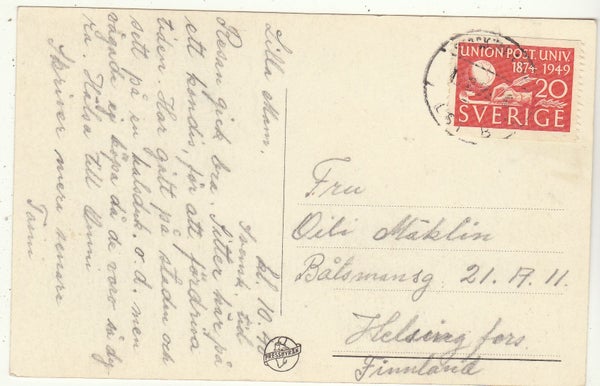 Lilla Mam.
Resan gick bra. Sitter här på
ett kondis, för att fördriva
tiden. Har gått på staden och
sett på en halsduk o.d. men
vågade ej köpa då de voro så dy
ra. Hälsa till Ummi
Skriver mera senare
Tossi
kl. 10.
Svensk tid
UNION POST. UNIV.
1874-1949
20
SVERIGE
Fru
Oili Mäklin
Båtsmansg. 21. A 11.
Helsingfors
Finnland
PRESSBYRÅN